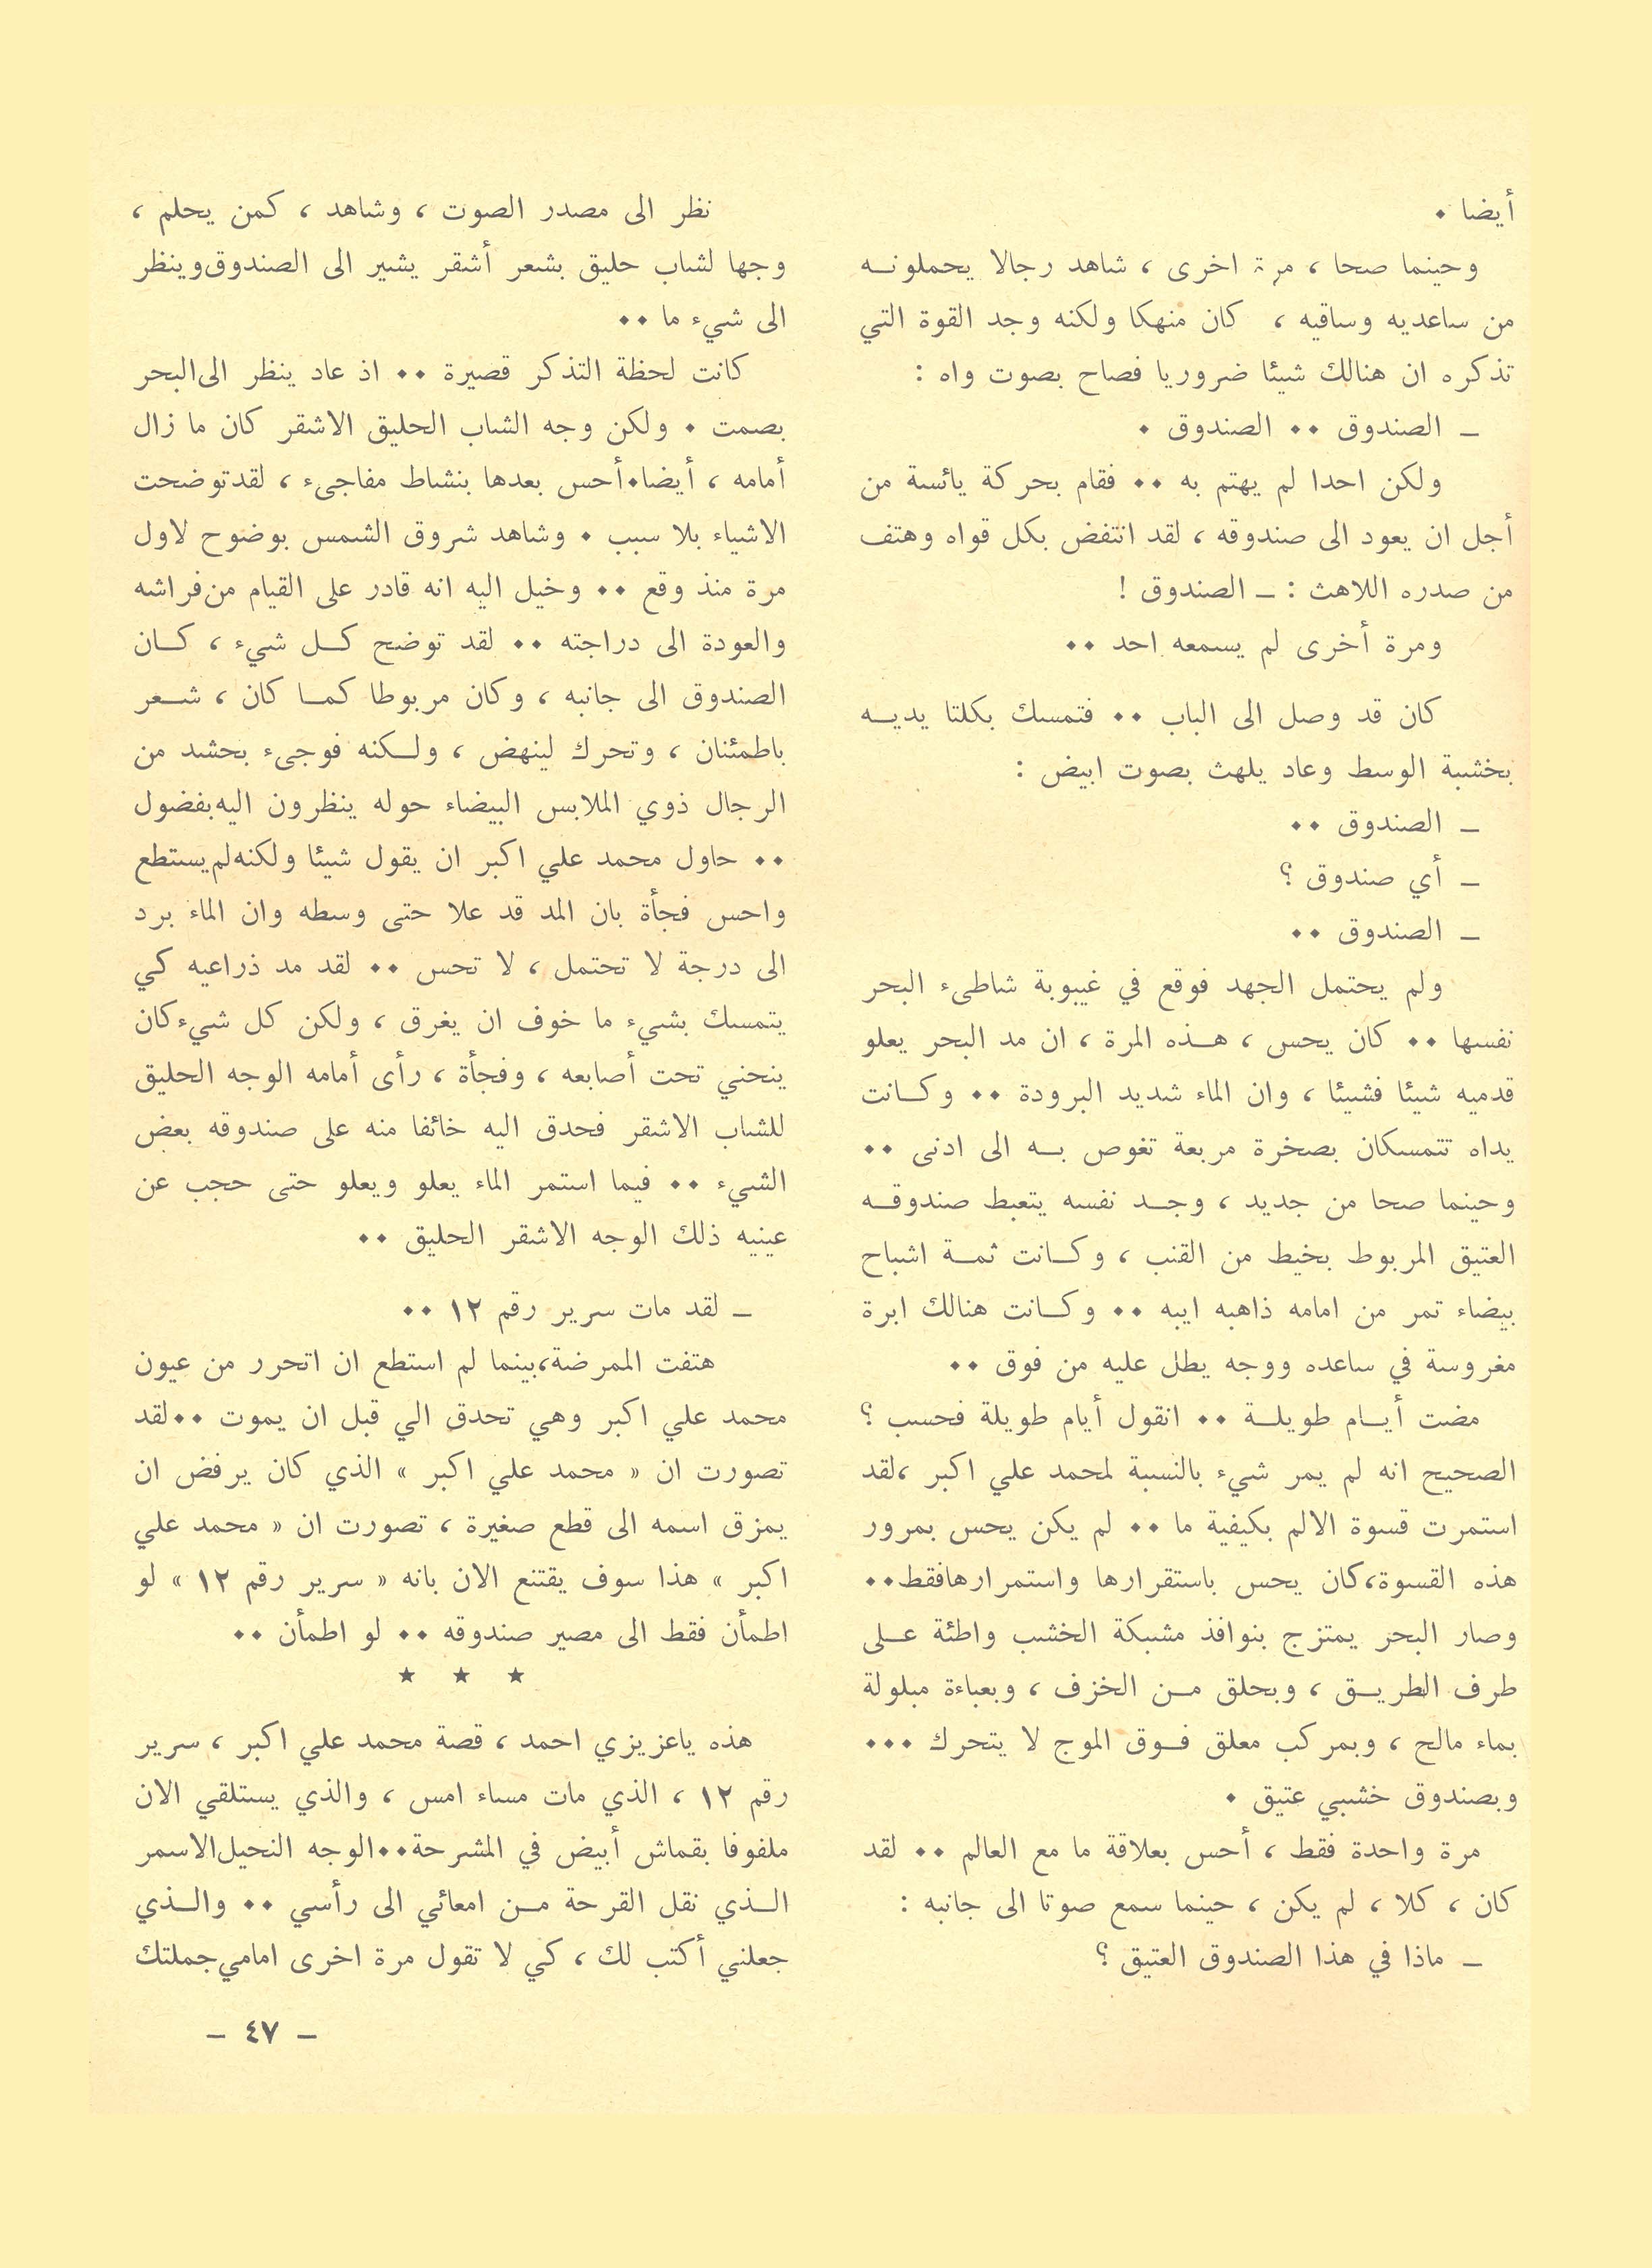 أيضا .
وحينما صحا ، مرة اخرى ، شاهد رجالا يحملونه
من ساعديه وساقيه ، كان منهكا ولكنه وجد القوة التي
تذكره ان هنالك شيئا ضروريا فصاح بصوت واه :
ـ الصندوق .. الصندوق .
ولكن احدا لم يهتم به .. فقام بحركة يائسة من
أجل ان يعود الى صندوقه ، لقد انتفض بكل قواه وهتف
من صدره اللاهث : ـ الصندوق !
ومرة أخرى لم يسمعه احد ..
كان قد وصل الى الباب .. فتمسك بكلتا يديه
بخشبة الوسط وعاد يلهث بصوت ابيض :
ـ الصندوق ..
ـ أي صندوق ؟
ـ الصندوق ..
ولم يحتمل الجهد فوقع في غيبوبة شاطىء البحر
نفسها .. كان يحس ، هذه المرة ، ان مد البحر يعلو
قدميه شيئا فشيئا ، وان الماء شديد البرودة .. وكانت
يداه تتمسكان بصخرة مربعة تغوص به الى ادنى ..
وحينما صحا من جديد ، وجد نفسه يتعبط صندوقه
العتيق المربوط بخيط من القنب ، وكانت ثمة اشباح
بيضاء تمر من امامه ذاهبه ايبه .. وكانت هنالك ابرة
مغروسة في ساعده ووجه يطل عليه من فوق ..
مضت أيام طويلة .. انقول أيام طويلة فحسب ؟
الصحيح انه لم يمر شيء بالنسبة لمحمد علي اكبر ،لقد
استمرت قسوة الالم بكيفية ما .. لم يكن يحس بمرور
هذه القسوة،كان يحس باستقرارها واستمرارهافقط..
وصار البحر يمتزج بنوافذ مشبكة الخشب واطئة على
طرف الطريق ، وبحلق من الخزف ، وبعباءة مبلولة
بماء مالح ، وبمركب معلق فوق الموج لا يتحرك ...
وبصندوق خشبي عتيق .
مرة واحدة فقط ، أحس بعلاقة ما مع العالم .. لقد
كان ، كلا ، لم يكن ، حينما سمع صوتا الى جانبه :
ـ ماذا في هذا الصندوق العتيق ؟
نظر الى مصدر الصوت ، وشاهد ، كمن يحلم ،
وجها لشاب حليق بشعر أشقر يشير الى الصندوق وينظر
الى شيء ما ..
كانت لحظة التذكر قصيرة .. اذ عاد ينظر الى البحر
بصمت . ولكن وجه الشاب الحليق الاشقر كان ما زال
أمامه ، أيضا.أحس بعدها بنشاط مفاجىء ، لقد توضحت
الاشياء بلا سبب . وشاهد شروق الشمس بوضوح لاول
مرة منذ وقع .. وخيل اليه انه قادر على القيام من فراشه
والعودة الى دراجته .. لقد توضح كل شيء ، كان
الصندوق الى جانبه ، وكان مربوطا كما كان ، شعر
باطمئنان ، وتحرك لينهض ، ولكنه فوجىء بحشد من
الرجال ذوي الملابس البيضاء حوله ينظرون اليه بفضول
.. حاول محمد علي اكبر ان يقول شيئا ولكنه لم يستطع
واحس فجأة بان المد قد علا حتى وسطه وان الماء برد
الى درجة لا تحتمل ، لا تحس .. لقد مد ذراعيه كي
يتمسك بشيء ما خوف ان يغرق ، ولكن كل شيء كان
ينحني تحت أصابعه ، وفجأة ، رأى أمامه الوجه الحليق
للشاب الاشقر فحدق اليه خائفا منه على صندوقه بعض
الشيء .. فيما استمر الماء يعلو ويعلو حتى حجب عن
عينيه ذلك الوجه الاشقر الحليق ..
ـ لقد مات سرير رقم ١٢ ..
هتفت الممرضة،بينما لم استطع ان اتحرر من عيون
محمد علي اكبر وهي تحدق الي قبل ان يموت ..لقد
تصورت ان « محمد علي اكبر » الذي كان يرفض ان
يمزق اسمه الى قطع صغيرة ، تصورت ان « محمد علي
اكبر » هذا سوف يقتنع الان بانه « سرير رقم ١٢ » لو
اطمأن فقط الى مصير صندوقه .. لو اطمأن ..
★ ★ ★
هذه ياعزيزي احمد ، قصة محمد علي اكبر ، سرير
رقم ١٢ ، الذي مات مساء امس ، والذي يستلقي الان
ملفوفا بقماش أبيض في المشرحة..الوجه النحيل الاسمر
الذي نقل القرحة من امعائي الى رأسي .. والذي
جعلني أكتب لك ، كي لا تقول مرة اخرى امامي جملتك
ـ ٤٧ ـ